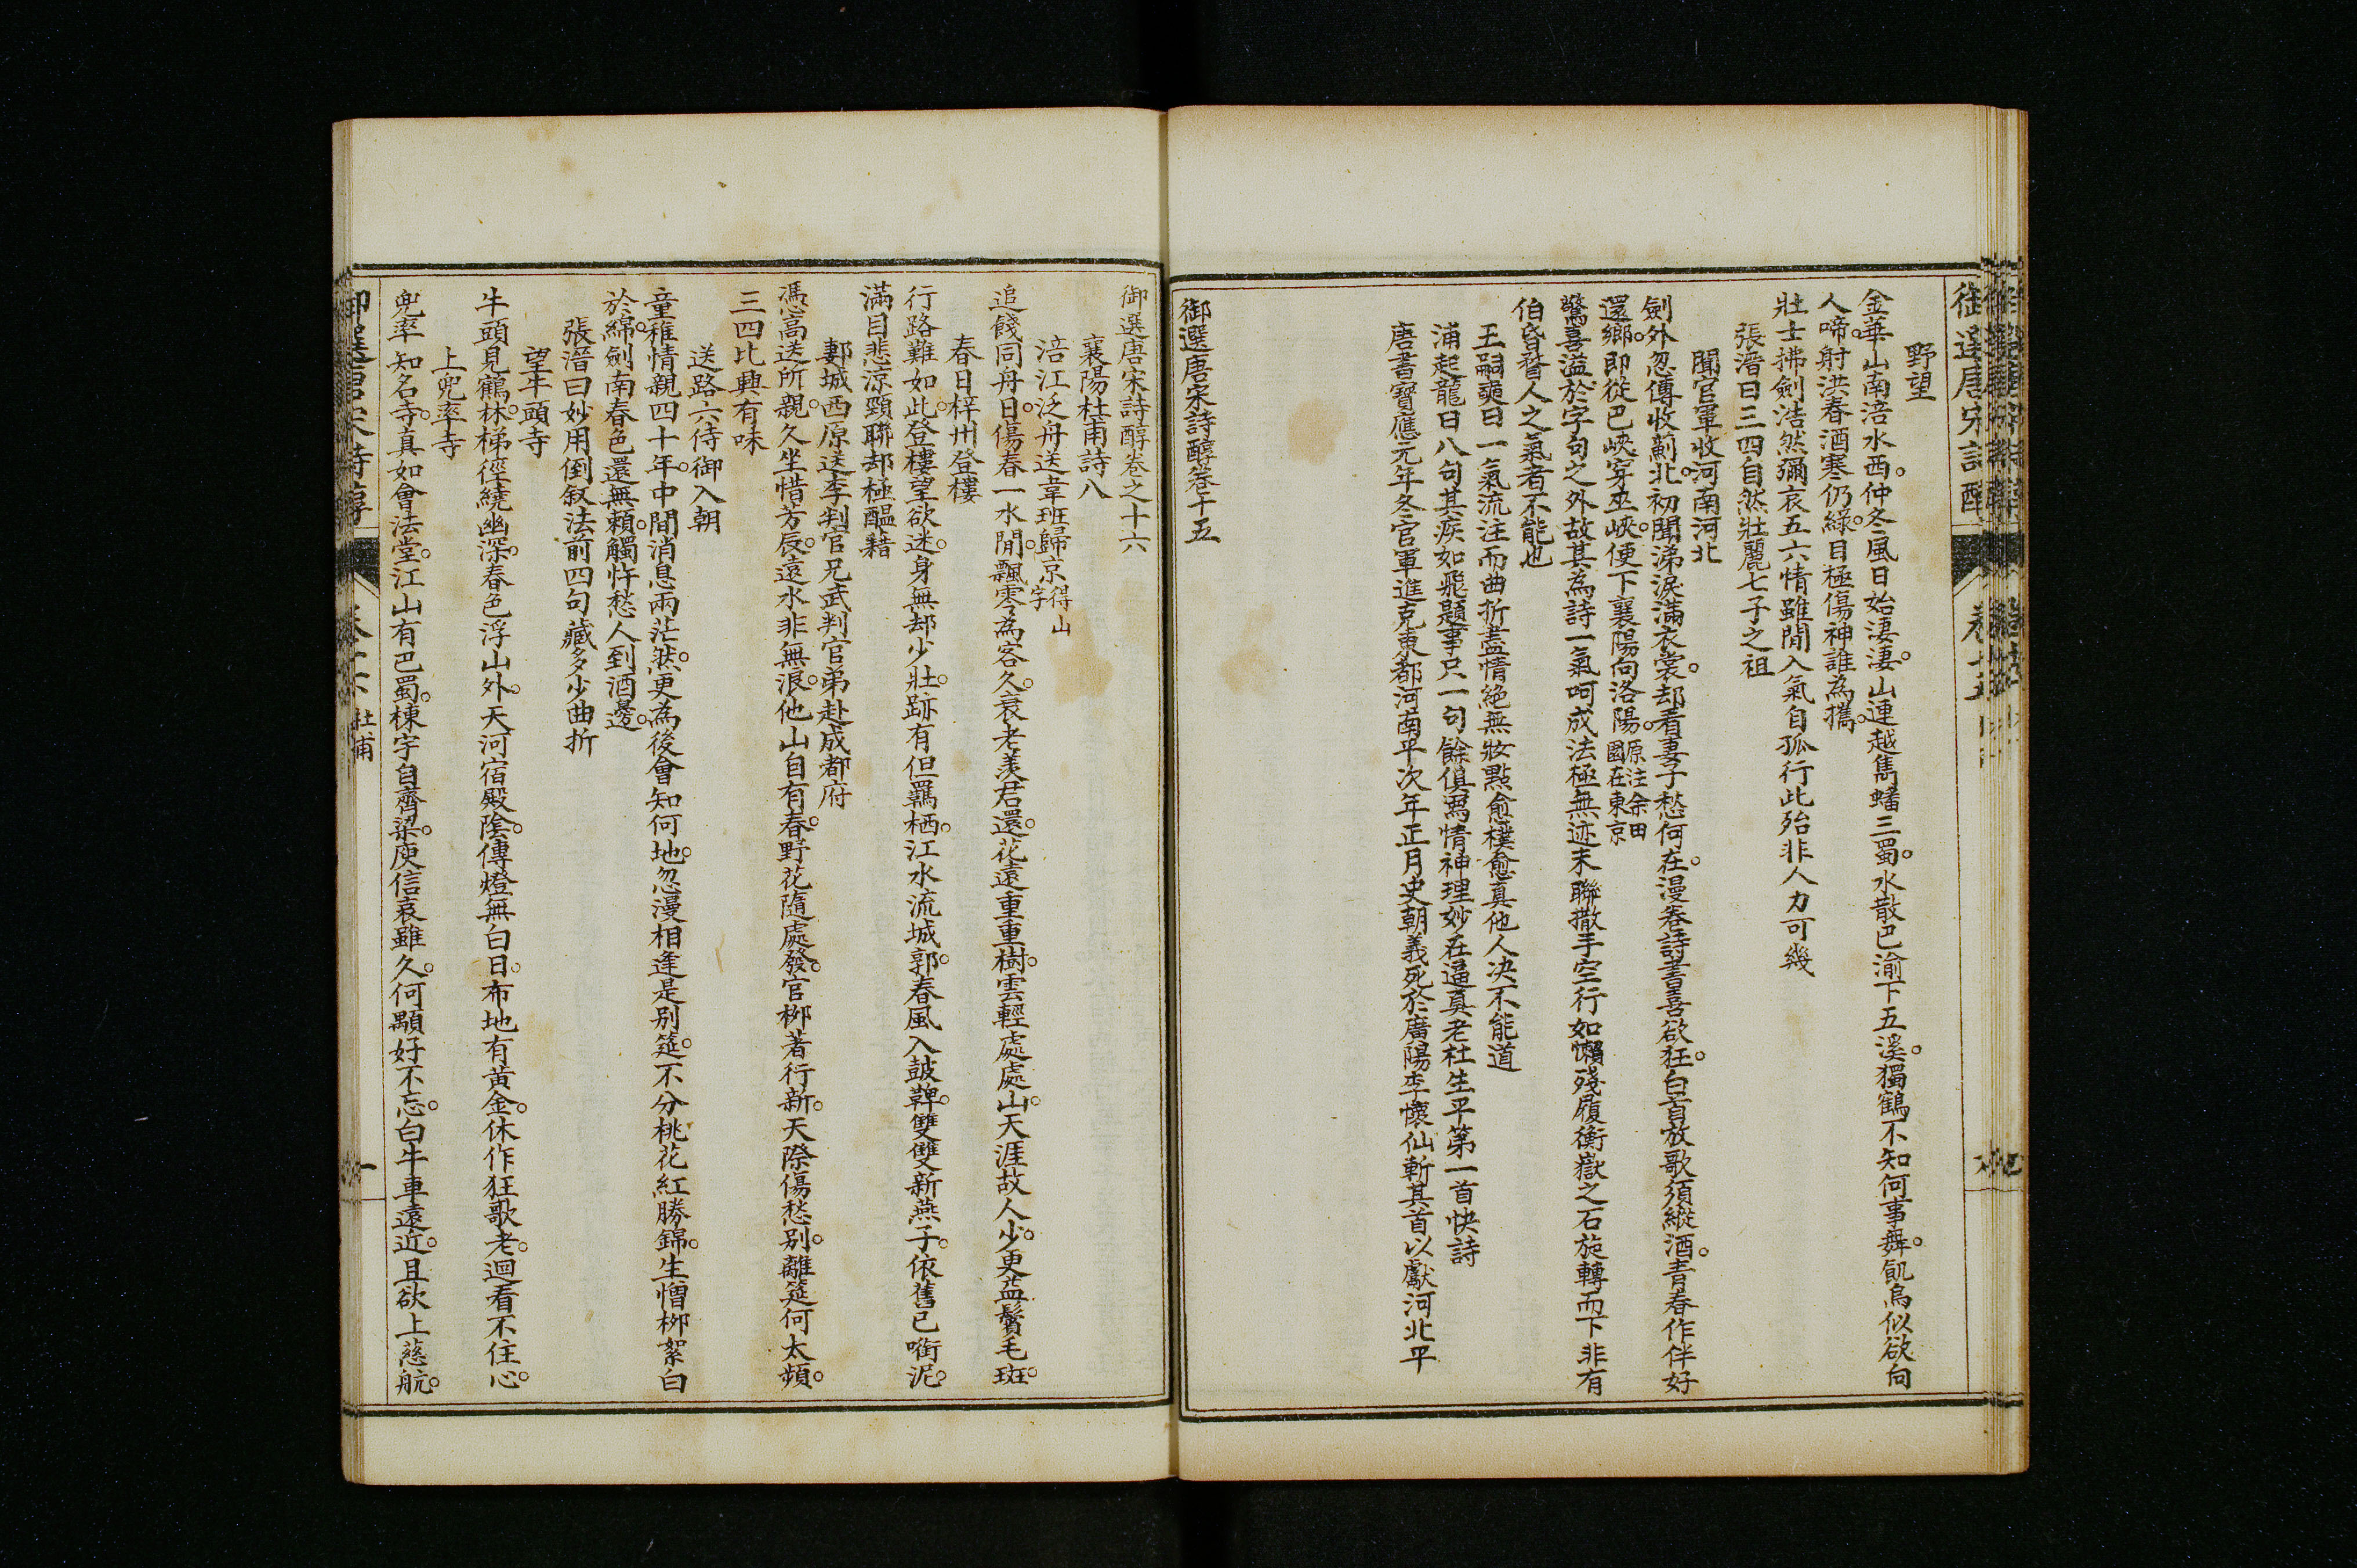 野望
金華山南涪水西。仲冬風日始淒淒。山連越嶲蟠三蜀。水散巴渝下五溪。獨鶴不知何事舞。飢烏似欲向
人啼。射洪春酒寒仍綠。目極傷神誰為攜。
壯士拂劍浩然彌哀五六情雖閒入氣自孤行此殆非人力可幾
張溍曰三四自然壯麗七子之祖
聞官軍收河南河北
劍外忽傳收薊北。初聞涕淚滿衣裳。却看妻子愁何在。漫卷詩書喜欲狂。白首放歌須縱酒。青春作伴好
還鄉。即從巴峽穿巫峽。便下襄陽向洛陽。原注余田國在東京
驚喜溢於字句之外故其為詩一氣呵成法極無迹末聯撒手空行如懶殘履衡嶽之石旋轉而下非有
伯昏瞀人之氣者不能也
王嗣奭曰一氣流注而曲折盡情絕無妝點愈樸愈真他人決不能道
浦起龍曰八句其疾如飛題事只一句餘俱寫情神理妙在逼真老杜生平第一首快詩
唐書寶應元年冬官軍進克東都河南平次年正月史朝義死於廣陽李懷仙斬其首以獻河北平
御選唐宋詩醇卷十五
御選唐宋詩醇卷之十六
襄陽杜甫詩八
涪江泛舟送韋班歸京得山字
追餞同舟日。傷春一水閒。飄零為客久。衰老羨君還。花遠重重樹。雲輕處處山。天涯故人少。更益鬢毛斑。
春日梓州登樓
行路難如此。登樓望欲迷。身無却少壯。跡有但羈栖。江水流城郭。春風入鼓鞞。雙雙新燕子。依舊已啣泥。
滿目悲涼頸聯却極醞藉
郪城西原送李判官兄武判官弟赴成都府
馮高送所親。久坐惜芳辰。遠水非無浪。他山自有春。野花隨處發。官柳著行新。天際傷愁別。離筵何太頻。
三四比興有味
送路六侍御入朝
童稚情親四十年。中間消息兩茫然。更為後會知何地。忽漫相逢是別筵。不分桃花紅勝錦。生憎柳絮白
於綿。劍南春色還無賴。觸忤愁人到酒邊。
張溍曰妙用倒叙法前四句藏多少曲折
望牛頭寺
牛頭見鶴林。梯徑繞幽深。春色浮山外。天河宿殿陰。傳燈無白日。布地有黃金。休作狂歌老。迴看不住心。
上兜率寺
兜率知名寺。真如會法堂。江山有巴蜀。棟宇自齊梁。庾信哀雖久。何顒好不忘。白牛車遠近。且欲上慈航。
御選唐宋詩醇 卷十六 杜甫 一